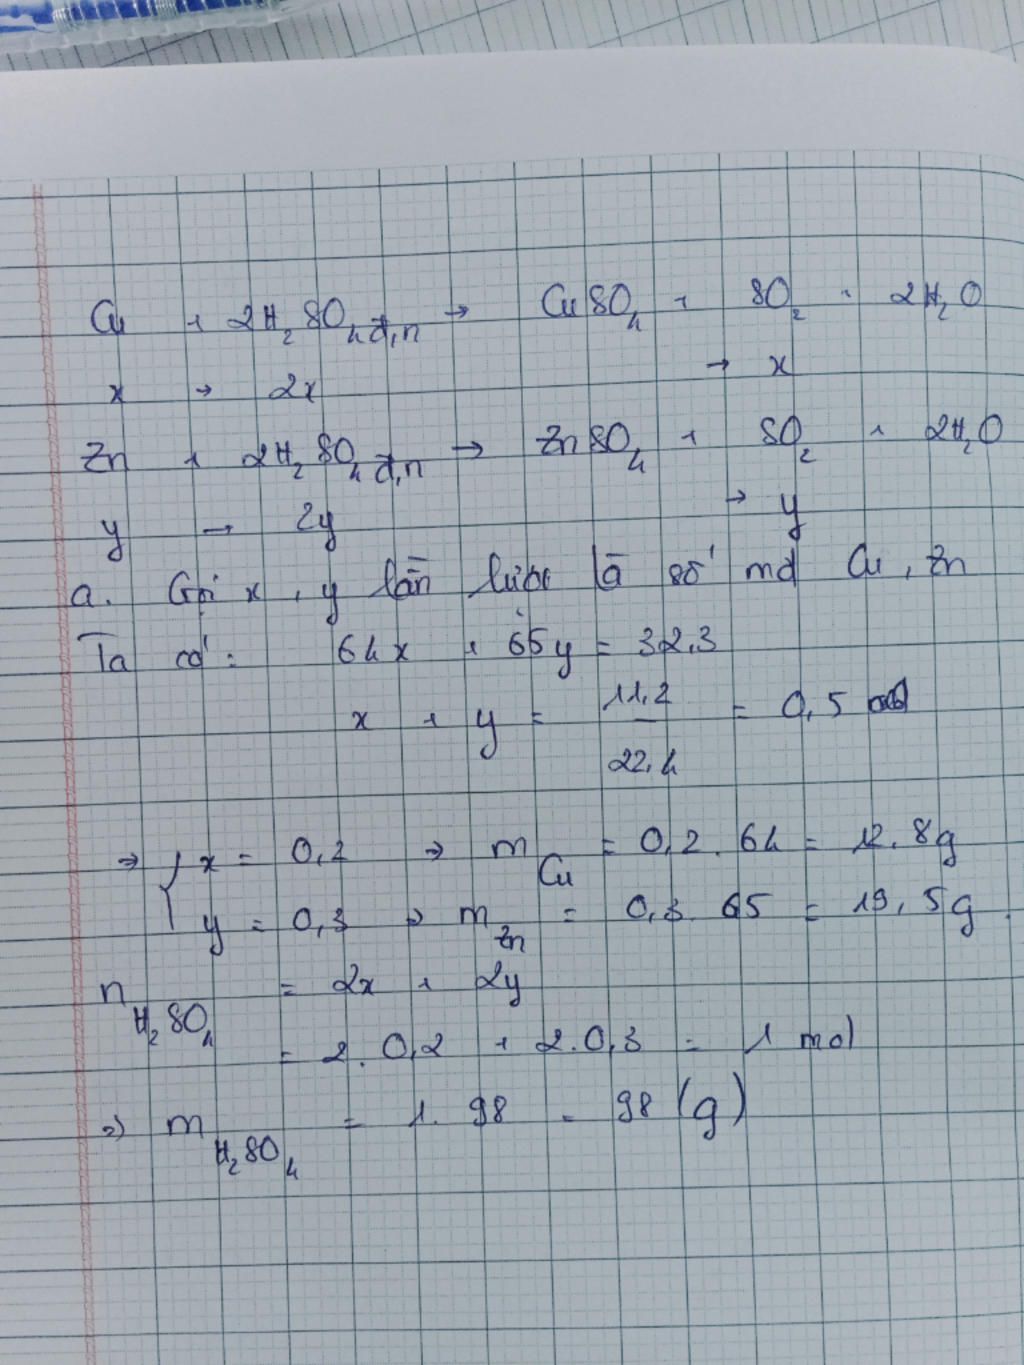 Cu + 2H₂SO₄ đ,n → CuSO₄ + SO₂ + 2H₂O
x → 2x → x
Zn + 2H₂SO₄ đ,n → ZnSO₄ + SO₂ + 2H₂O
y → 2y → y
a. Gọi x, y lần lượt là số mol Cu, Zn
Ta có: 64x + 65y = 32,3
x + y = 11,2 / 22,4 = 0,5 mol
⇒ { x = 0,2 ⇒ m Cu = 0,2 . 64 = 12,8g
y = 0,3 ⇒ m Zn = 0,3 . 65 = 19,5g
n H₂SO₄ = 2x + 2y
= 2 . 0,2 + 2 . 0,3 = 1 mol
⇒ m H₂SO₄ = 1 . 98 = 98 (g)